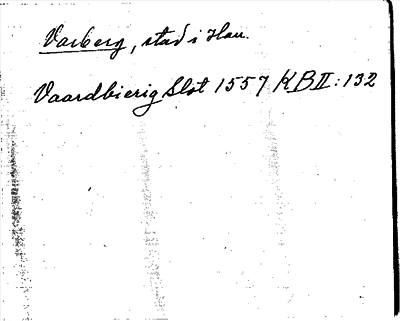 Varberg, stad i Hall.
Vaardbierig Slot 1557 KB II: 132